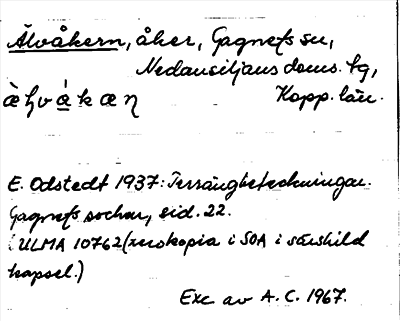 Älvåkern, åker, Gagnefs sn,
Nedansiljans doms. tg,
Kopp. län.
E. Odstedt 1937: Terrängbeteckningar.
Gagnefs socken, sid. 22.
(ULMA 10762 (xerokopia i SOA i särskild
kapsel.)
Exc av A. C. 1967.